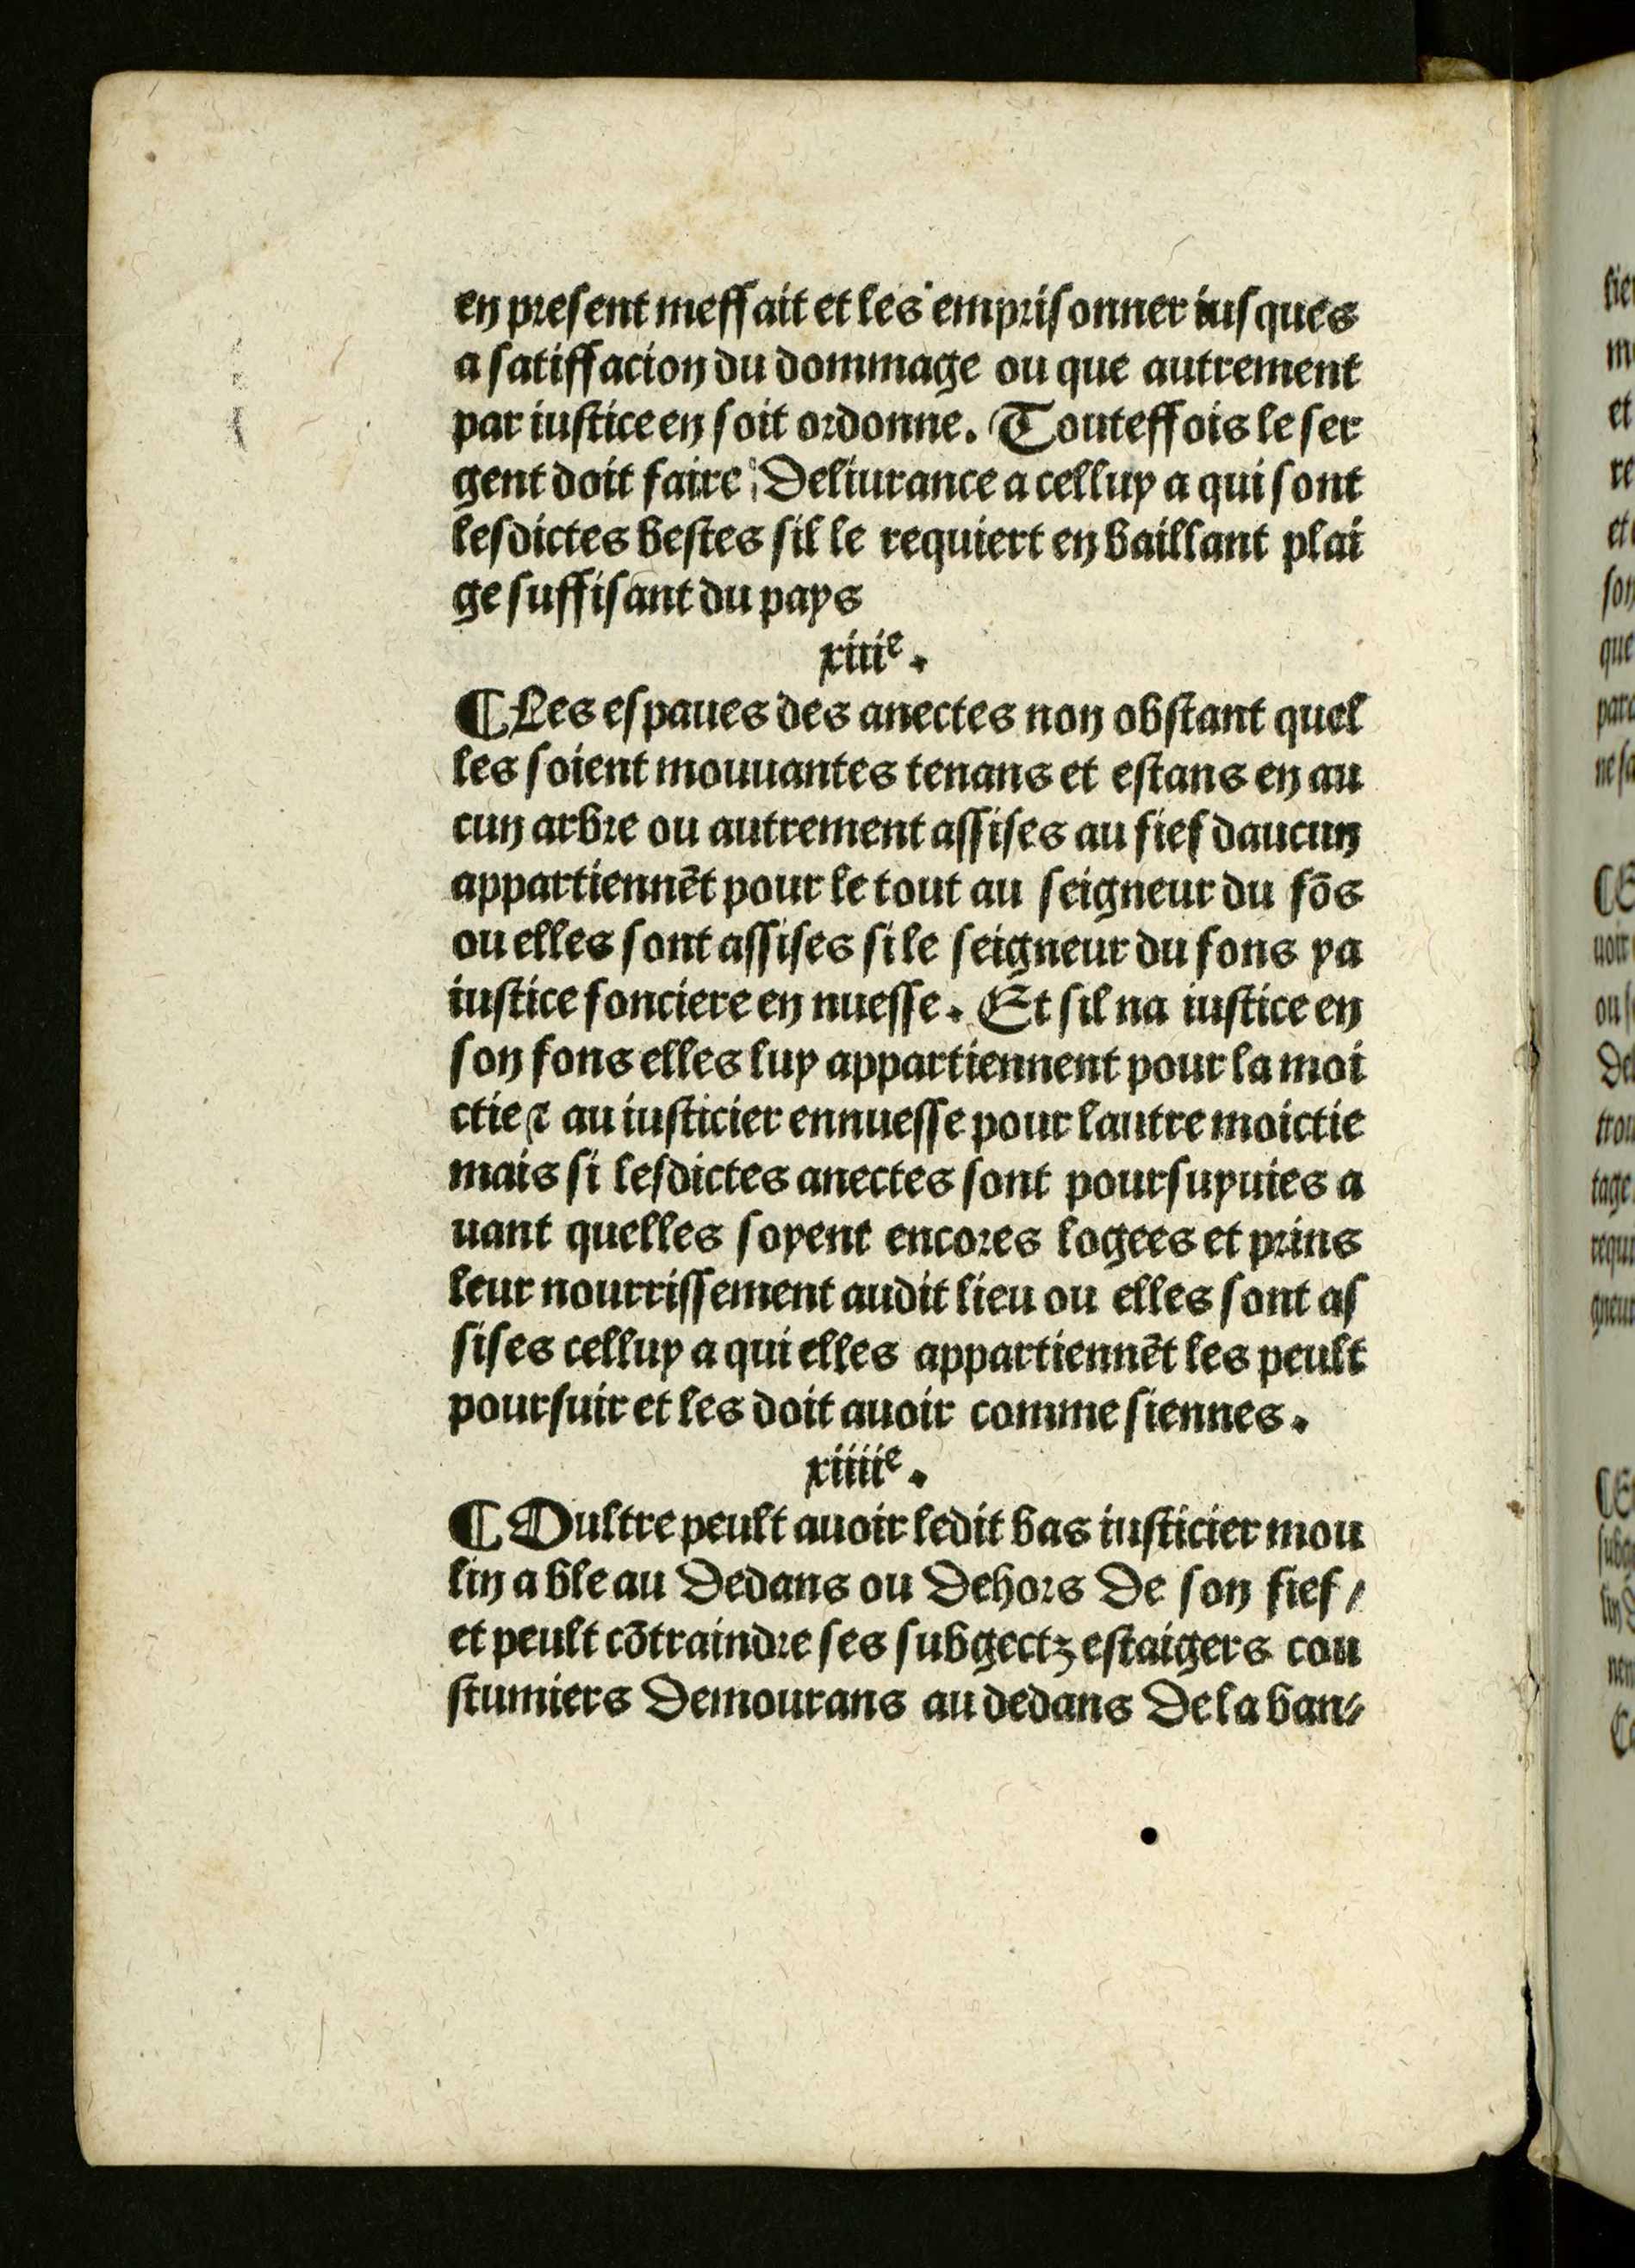 en present meffait et les emprisonner iusques
a satiffacion du dommage ou que autrement
par iustice en soit ordonne. Touteffois le ser
gent doit faire Deliurance a celluy a qui sont
lesdictes bestes sil le requiert en baillant plai
ge suffisant du pays
xiiiᵉ.
¶ Les espaues des auectes non obstant quel
les soient mouuantes tenans et estans en au
cun arbre ou autrement assises au fief daucun
appartiennēt pour le tout au seigneur du fōs
ou elles sont assises si le seigneur du fons ya
iustice fonciere en nuesse. Et sil na iustice en
son fons elles luy appartiennent pour la moi
ctie ⁊ au iusticier ennuesse pour lautre moictie
mais si lesdictes anectes sont poursuyuies a
uant quelles soyent encores logees et prins
leur nourrissement audit lieu ou elles sont as
sises celluy a qui elles appartiennēt les peult
poursuir et les doit auoir comme siennes.
xiiiiᵉ.
¶ Oultre peult auoir ledit bas iusticier mou
lin a ble au Dedans ou Dehors De son fief/
et peult cōtraindre ses subgectz estaigers cou
stumiers Demourans au dedans De la ban/